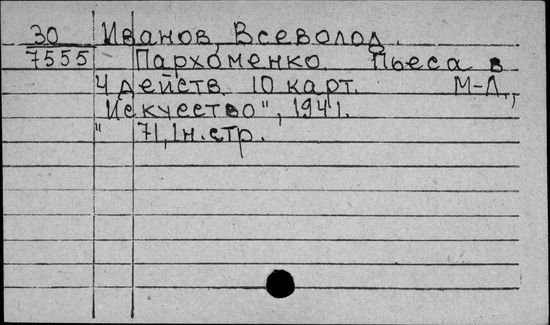 30 Иванов, Всеволод.
7555 Пархоменко. Пьеса в
4 действ. 10 карт. М-Л.,
"Искусство", 1941.
71, 1н.стр.